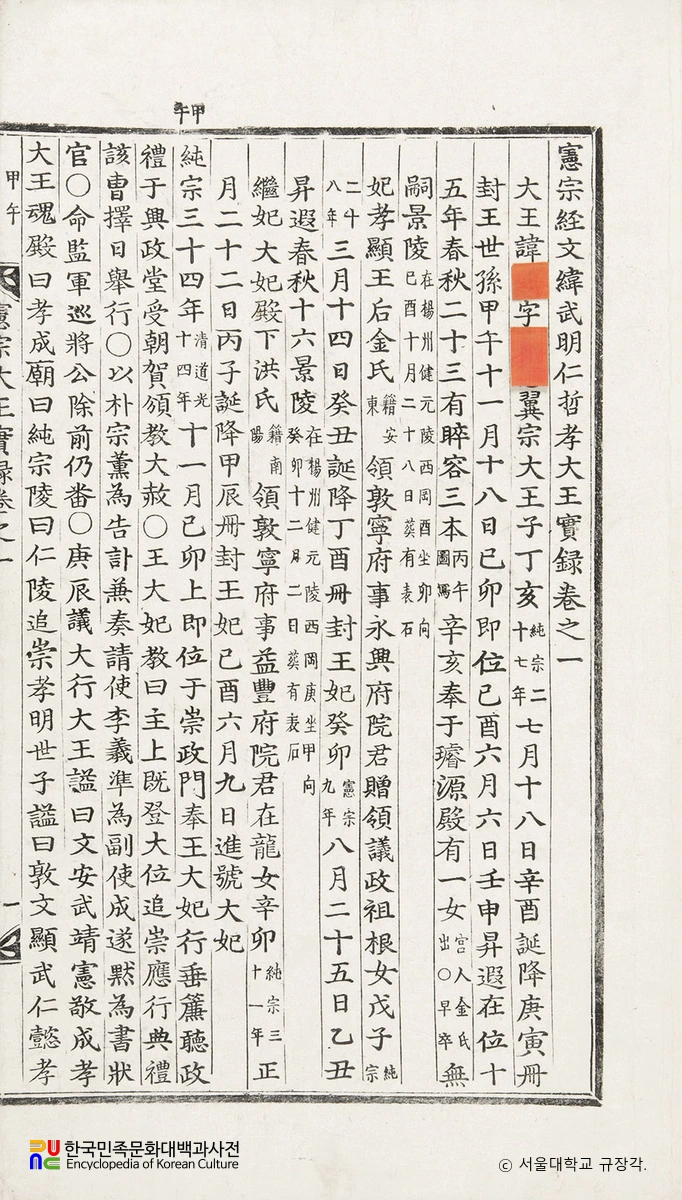 甲午
憲宗經文緯武明仁哲孝大王實録卷之一
大王諱 字 翼宗大王子丁亥純宗二十七年七月十八日辛酉誕降庚寅冊
封王世孫甲午十一月十八日己卯即位己酉六月六日壬申昇遐在位十
五年春秋二十三有睟容三本丙午圖寫辛亥奉于璿源殿有一女宮人金氏出○早卒無
嗣景陵在楊州健元陵西岡酉坐卯向己酉十月二十八日葬有表石
妃孝顯王后金氏籍安東領敦寧府事永興府院君贈領議政祖根女戊子純宗
二十八年三月十四日癸丑誕降丁酉冊封王妃癸卯憲宗九年八月二十五日乙丑
昇遐春秋十六景陵在楊州健元陵西岡庚坐甲向癸卯十二月二日葬有表石
繼妃大妃殿下洪氏籍南陽領敦寧府事益豐府院君在龍女辛卯純宗三十一年正
月二十二日丙子誕降甲辰冊封王妃己酉六月九日進號大妃
純宗三十四年清道光十四年十一月己卯上即位于崇政門奉王大妃行垂簾聽政
禮于興政堂受朝賀頒教大赦○王大妃教曰主上既登大位追崇應行典禮
該曹擇日舉行○以朴宗薰為告訃兼奏請使李羲準為副使成遂默為書狀
官○命監軍巡將公除前仍番○庚辰議大行大王謚曰文安武靖憲敬成孝
大王魂殿曰孝成廟曰純宗陵曰仁陵追崇孝明世子謚曰敦文顯武仁懿孝
甲午
憲宗大王實録卷之一
一
한국민족문화대백과사전
Encyclopedia of Korean Culture
ⓒ 서울대학교 규장각.